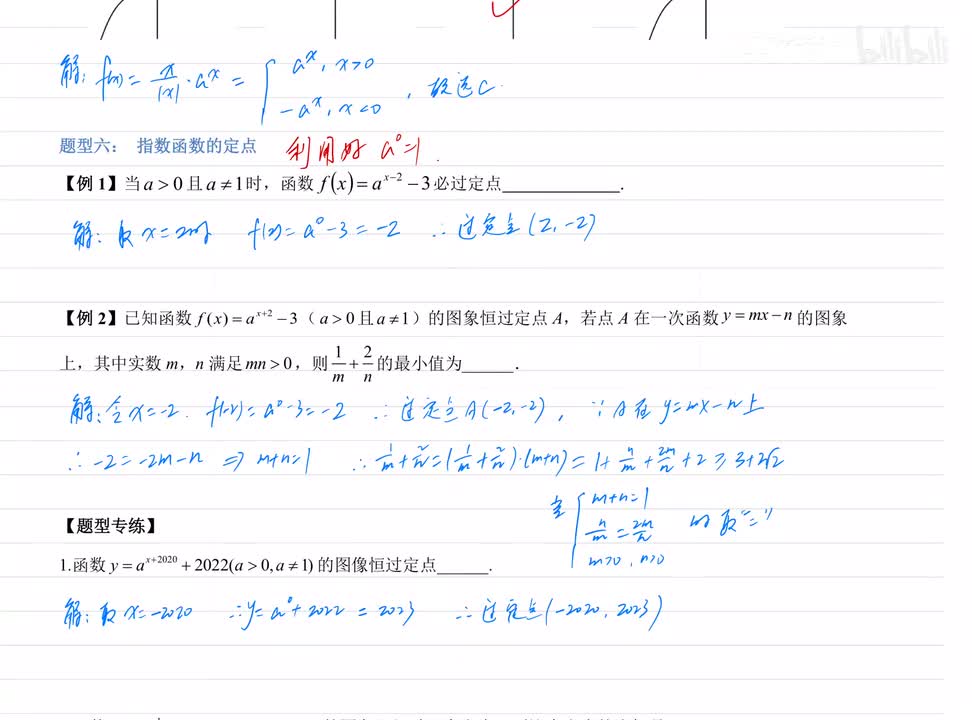 bilibili
解: f(x) = x/|x| · aˣ = { aˣ, x>0
-aˣ, x<0 , 故选C.
题型六: 指数函数的定点 利用好 a⁰=1.
【例 1】当 a > 0 且 a ≠ 1 时，函数 f(x) = aˣ⁻² − 3 必过定点____________.
解: 取 x=2时 f(2)= a⁰-3 = -2 ∴过定点(2,-2)
【例 2】已知函数 f(x) = aˣ⁺² − 3（ a > 0 且 a ≠ 1）的图象恒过定点 A，若点 A 在一次函数 y = mx − n 的图象
上，其中实数 m，n 满足 mn > 0，则 1/m + 2/n 的最小值为______．
解: 令x=-2. f(-2)= a⁰-3=-2 ∴过定点A(-2,-2), ∵A在 y=mx-n上
∴ -2=-2m-n ⇒ m+n=1 ∴ 1/m+2/n=(1/m+2/n)·(m+n)= 1+ n/m + 2m/n +2 ≥ 3+2√2
{ m+n=1
n/m = 2m/n 时取"="
m>0, n>0
【题型专练】
1.函数 y = aˣ⁺²⁰²⁰ + 2022(a > 0, a ≠ 1) 的图像恒过定点______.
解: 取 x=-2020 ∴y= a⁰+2022 = 2023 ∴过定点(-2020, 2023)